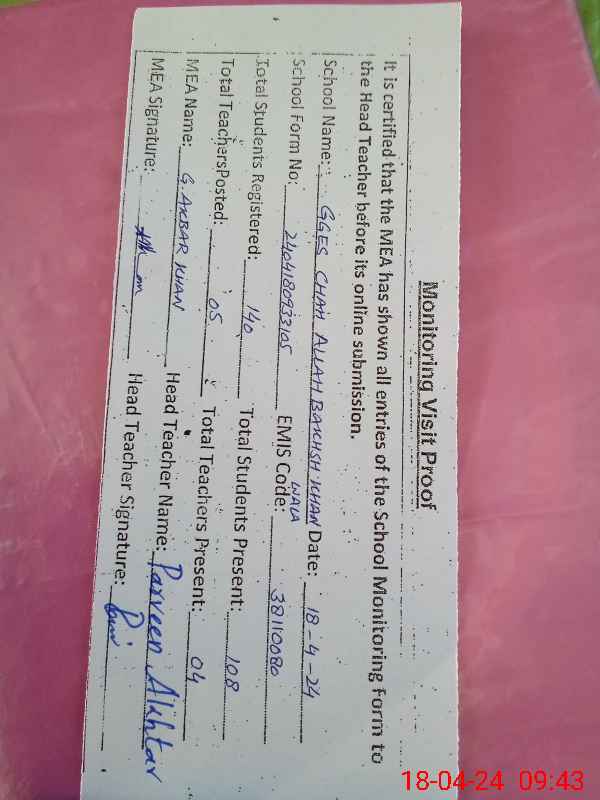 Monitoring Visit Proof
It is certified that the MEA has shown all entries of the School Monitoring form to
the Head Teacher before its online submission.
School Name: GGES CHAH ALLAH BAKHSH KHAN WALA Date: 18-4-24
School Form No: 2404180933105 EMIS Code: 38110080
Total Students Registered: 140 Total Students Present: 108
Total TeachersPosted: 05 Total Teachers Present: 04
MEA Name: G. AKBAR KHAN Head Teacher Name: Parveen Akhtar
MEA Signature: Head Teacher Signature:
18-04-24 09:43